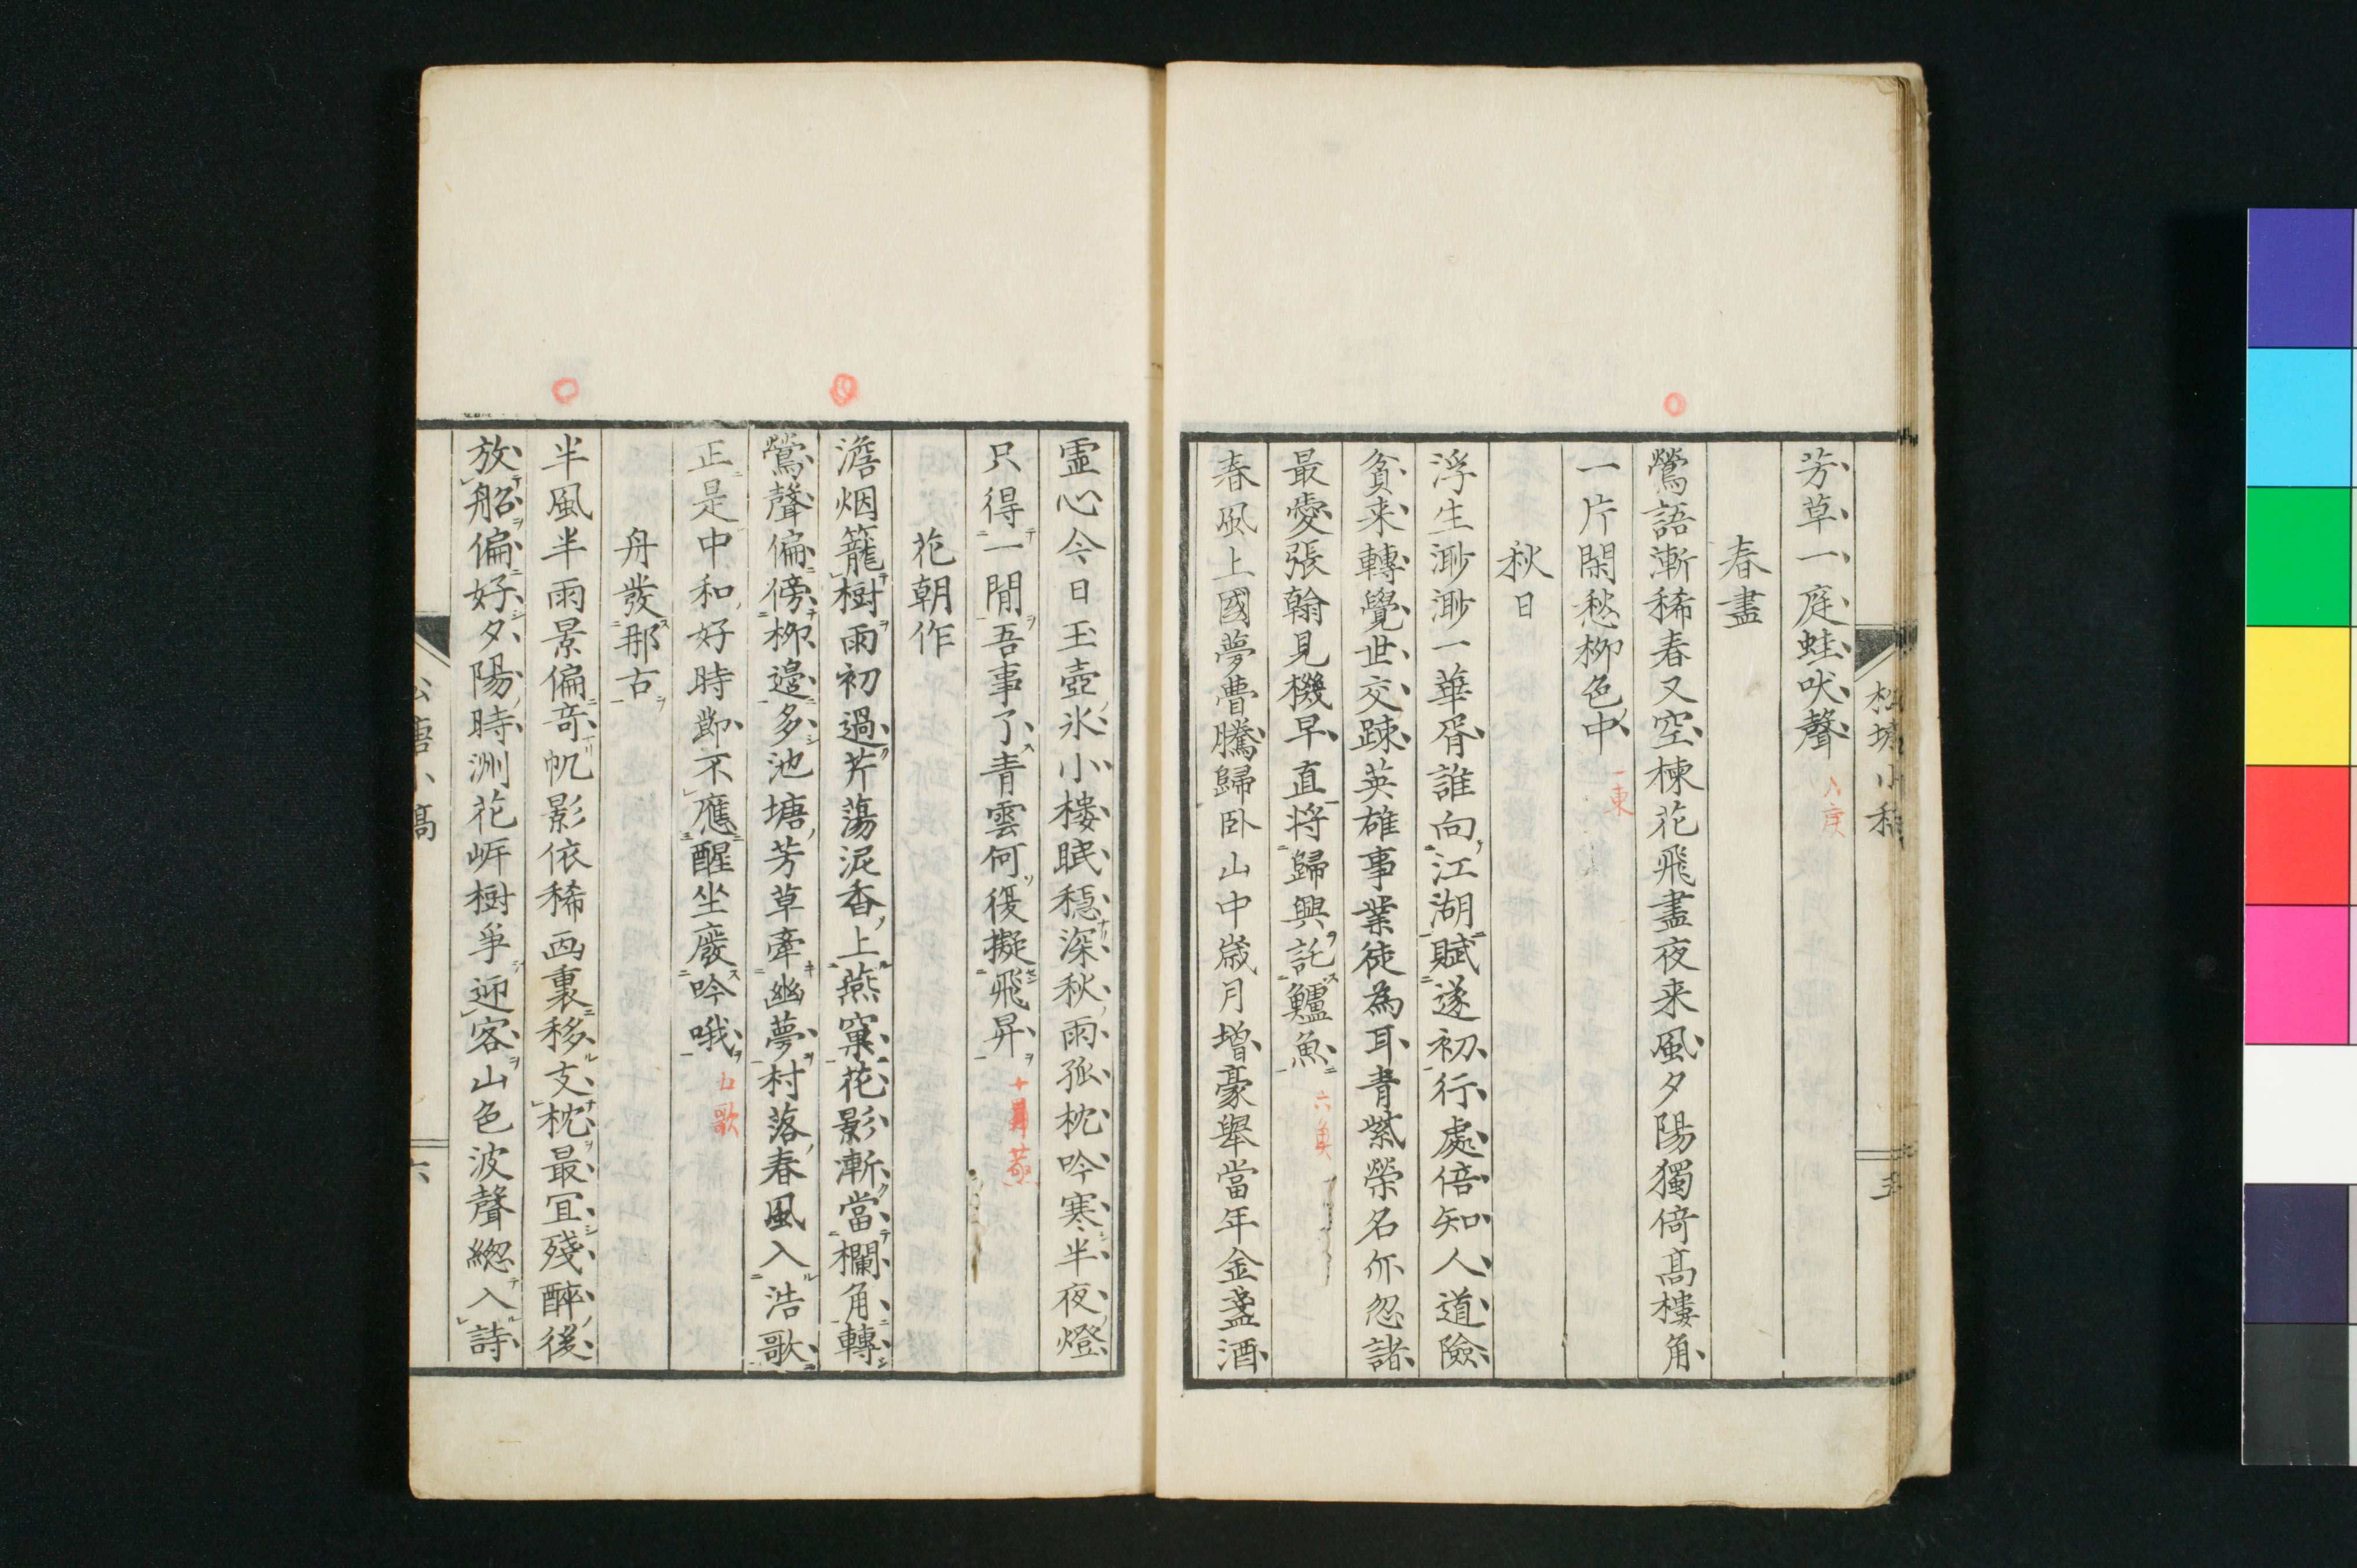 松塘小稿
五
芳草一庭蛙吠聲
八庚
春盡
鶯語漸稀春又空楝花飛盡夜来風夕陽獨倚髙樓角
一片閑愁柳色中
一東
秋日
浮生渺渺一華胥誰向江湖賦遂初行處倍知人道險
貧来轉覺世交踈英雄事業徒為耳青紫榮名尒忽諸
最愛張翰見機早直将歸興託鱸魚
六魚
春風上國夢曹騰歸卧山中歳月増豪舉當年金盞酒
霊心今日玉壺氷小樓眠穏深秋雨孤枕吟寒半夜燈
只得一閒吾事了青雲何復擬飛昇
十蒸
花朝作
澹烟籠樹雨初過芹蕩泥香上燕窠花影漸當欄角轉
鶯聲偏傍柳邉多池塘芳草牽幽夢村落春風入浩歌
正是中和好時莭不應醒坐廢吟哦
五歌
舟發那古
半風半雨景偏竒帆影依稀画裏移支枕最宜殘醉後
放船偏好夕陽時洲花岸樹爭迎客山色波聲緫入詩
六